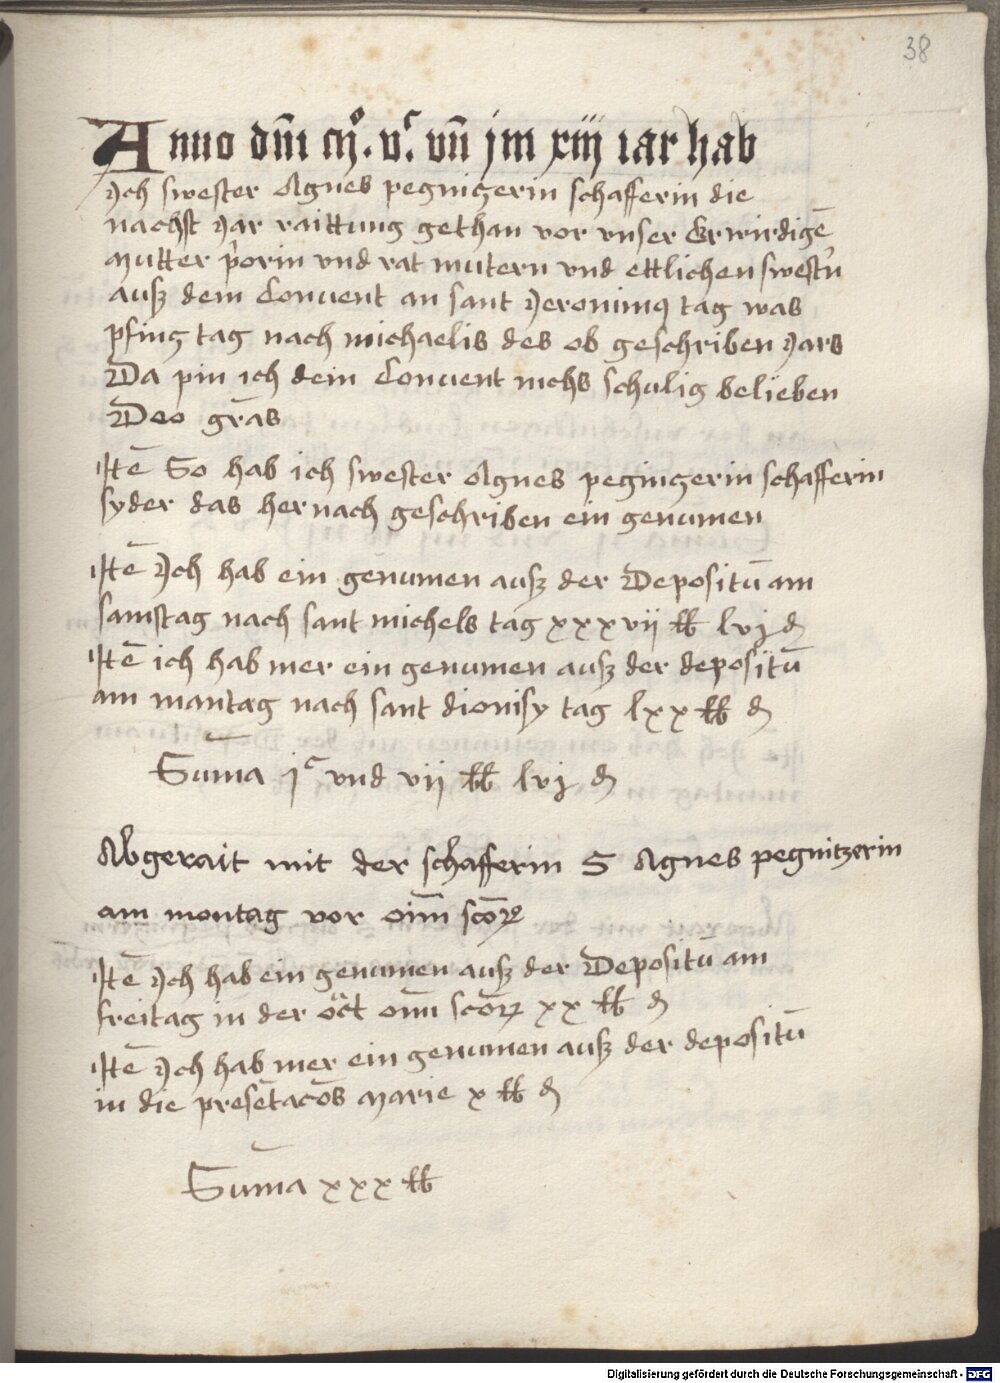 38
Anno dm̄ mͦ. vͨ. vn̄ jm xiij iar hab
Jch swester Agnes pegniczerin schafferin die
nachst Jar raittung gethan vor vnser Erwirdigē
Mutter p̄orin vnd rat mutern vnd ettlichen swest̄n
ausz dem Conuent an sant Jeronimꝰ tag was
pfincz tag nach michaelis des ob geschriben Jars
Da pin ich dem Conuent nichs schulig belieben
Deo grās
Itē So hab ich swester Agnes pegniczerin schafferin
syder das hernach geschriben ein genumen
Itē Jch hab ein genumen ausz der Depositū am
samstag nach sant michels tag xxxvij ℔ lvj ₰
Itē ich hab mer ein genumen ausz der depositū
am mantag nach sant dionisy tag lxx ℔ ₰
Sum̄a jͨ vnd vij ℔ lvj ₰
Abgerait mit der schafferin S Agnes pegnitzerin
am montag vor oīm scōꝝ
Itē Jch hab ein genumen ausz der Depositū am
freitag in der oct̄ oīm scōꝝ xx ℔ ₰
Itē Jch hab mer ein genumen ausz der depositū
in die presētacōs Marie x ℔ ₰
Sum̄a xxx ℔
Digitalisierung gefördert durch die Deutsche Forschungsgemeinschaft - DFG